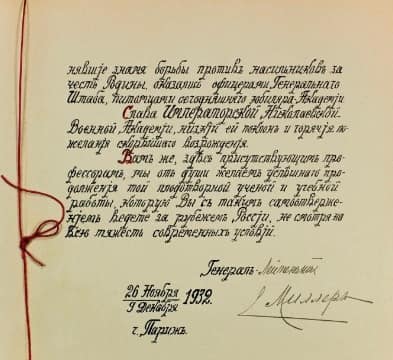 нявшіе знамя борьбы противъ насильниковъ за
честь Родины, оказались офицерами Генеральнаго
Штаба, питомцами сегодняшняго юбиляра-Академіи
Слава Императорской Николаевской
Военной Академіи, низкій ей поклонъ и горячія по-
желанія скорѣйшаго возрожденія.
Вамъ же, здѣсь присутствующимъ про-
фессорамъ, мы отъ души желаемъ успѣшнаго про-
долженія той плодотворной ученой и учебной
работы, которую Вы съ такимъ самоотверже-
ніемъ ведете за рубежемъ Россіи, не смотря на
всю тяжесть современныхъ условій.
Генералъ-Лейтенантъ
Е. Миллеръ
26 Ноября
9 Декабря
1932.
г. Парижъ.